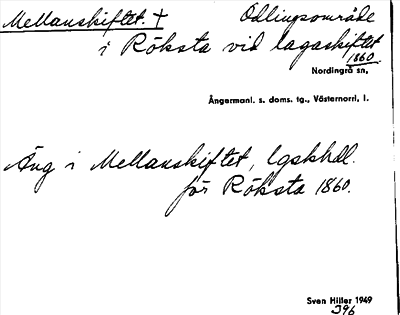 Mellanskiftet. + Odlingsområde
i Röksta vid lagaskiftet
1860.
Nordingrå sn,
Ångermanl. s. doms. tg., Västernorrl. l.
Äng i Mellanskiftet, lgskhdl.
för Röksta 1860.
Sven Hiller 1949
396